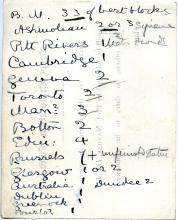 B.M. 33 of best blocks
Ashmolean 2 or 3
Pitt Rivers
Cambridge 1
Geneva 2
Toronto 2
Mars 3
Bolton 2
Edin. 4
Brussels 7 +
Glasgow 1 or 2
Australia 1 Dundee 2
Dublin 1
Greenock
Bristol 1